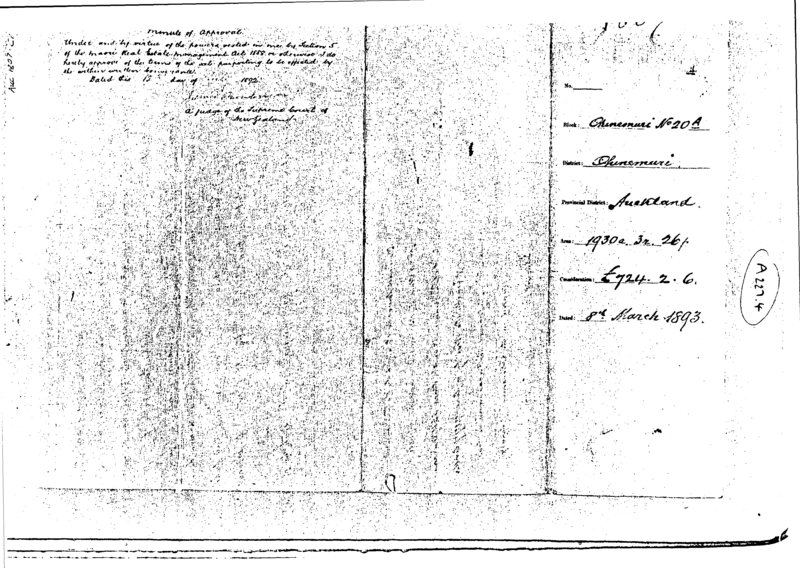 Minute of Approval
Under and by virtue of the powers vested in me by Section 5
of the Maori Real Estate Management Act 1888 or otherwise I do
hereby approve of the terms of the sale purporting to be effected by
the within written
Dated this 15 day of 1893
A Judge of the Supreme Court of
New Zealand.
No.
Block: Ohinemuri No 20A
District: Ohinemuri.
Provincial District: Auckland.
Area: 1930a. 3r. 26p.
Consideration: £724. 2. 6.
Dated: 8th March 1893.
A 227.4